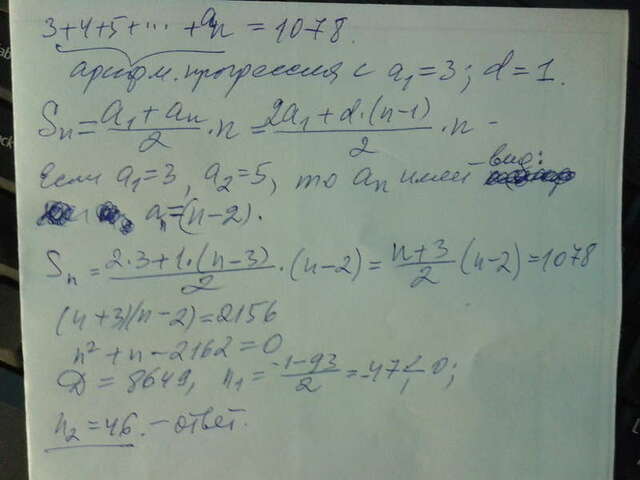 3+4+5+...+an = 1078.
арифм. прогрессия с a₁=3; d=1.
Sn = (a₁+an)/2 · n = (2a₁+d·(n-1))/2 · n -
Если a₁=3, a₂=5, то an имеет вид:
an=(n-2).
Sn = (2·3+1·(n-3))/2 · (n-2) = (n+3)/2 (n-2) = 1078
(n+3)(n-2)=2156
n²+n-2162=0
D = 8649, n₁ = (-1-93)/2 = -47 < 0;
n₂ = 46. - ответ.